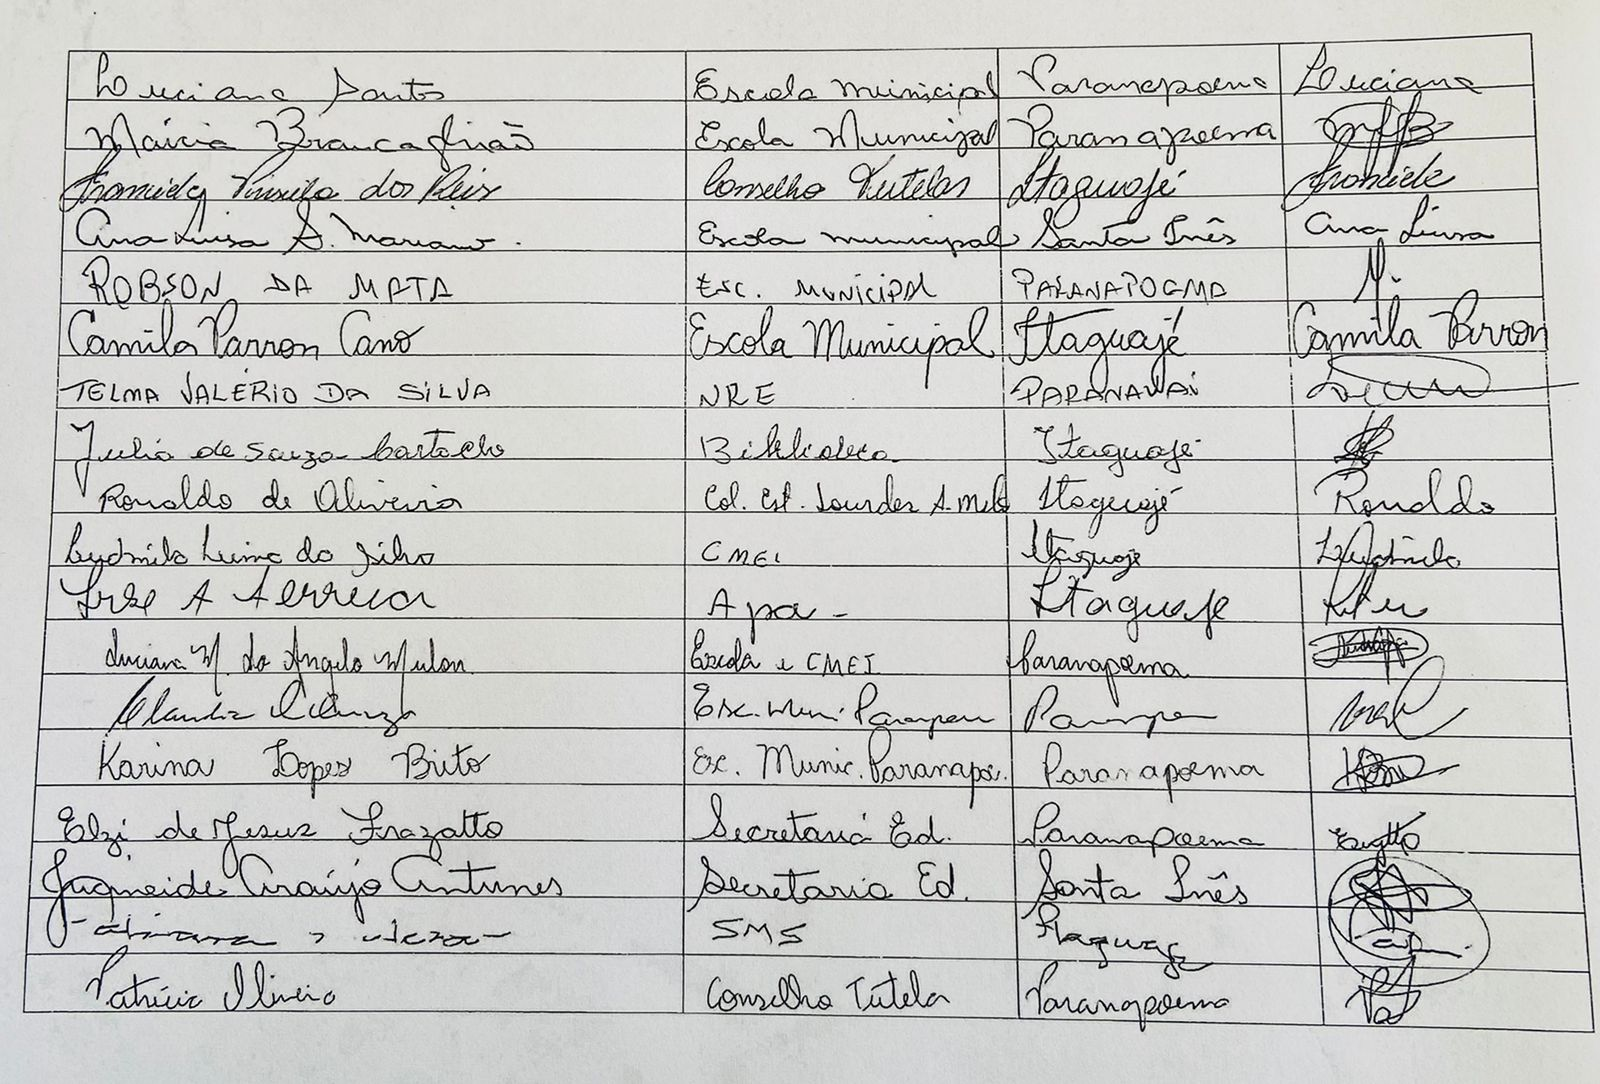 Luciana Santos Escola Municipal Paranapoema Luciana
Márcia Brancaglião Escola Municipal Paranapoema
dos Reis Conselho Tutelar Itaguajé
Ana Luisa S. Mariano. Escola municipal Santa Inês Ana Luisa
ROBSON DA MATA ESC. MUNICIPAL PARANAPOEMA
Camila Parron Cano Escola Municipal Itaguajé Camila Parron
TELMA VALÉRIO DA SILVA NRE PARANAVAÍ
de Souza Biblioteca Itaguajé
Ronaldo de Oliveira Col. Est. Lourdes A. Melo Itaguajé Ronaldo
Ludmila Lima da Silva CMEI Itaguajé Ludmila
A Apa - Itaguaje
Luciana M. do Angelo Escola e CMEI Paranapoema
Claudia Esc. Muni
Karina Lopes Brito Esc. Munic. Paranapoe. Paranapoema
Elzi de Jesus Frazatto Secretaria Ed. Paranapoema
Araújo Antunes Secretaria Ed. Santa Inês
SMS Itaguaje
Patrícia Conselho Tutela Paranapoema